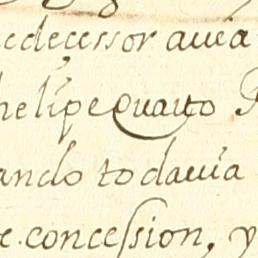 edecessor auia
helipe Quarto
ando todauia
concession, y